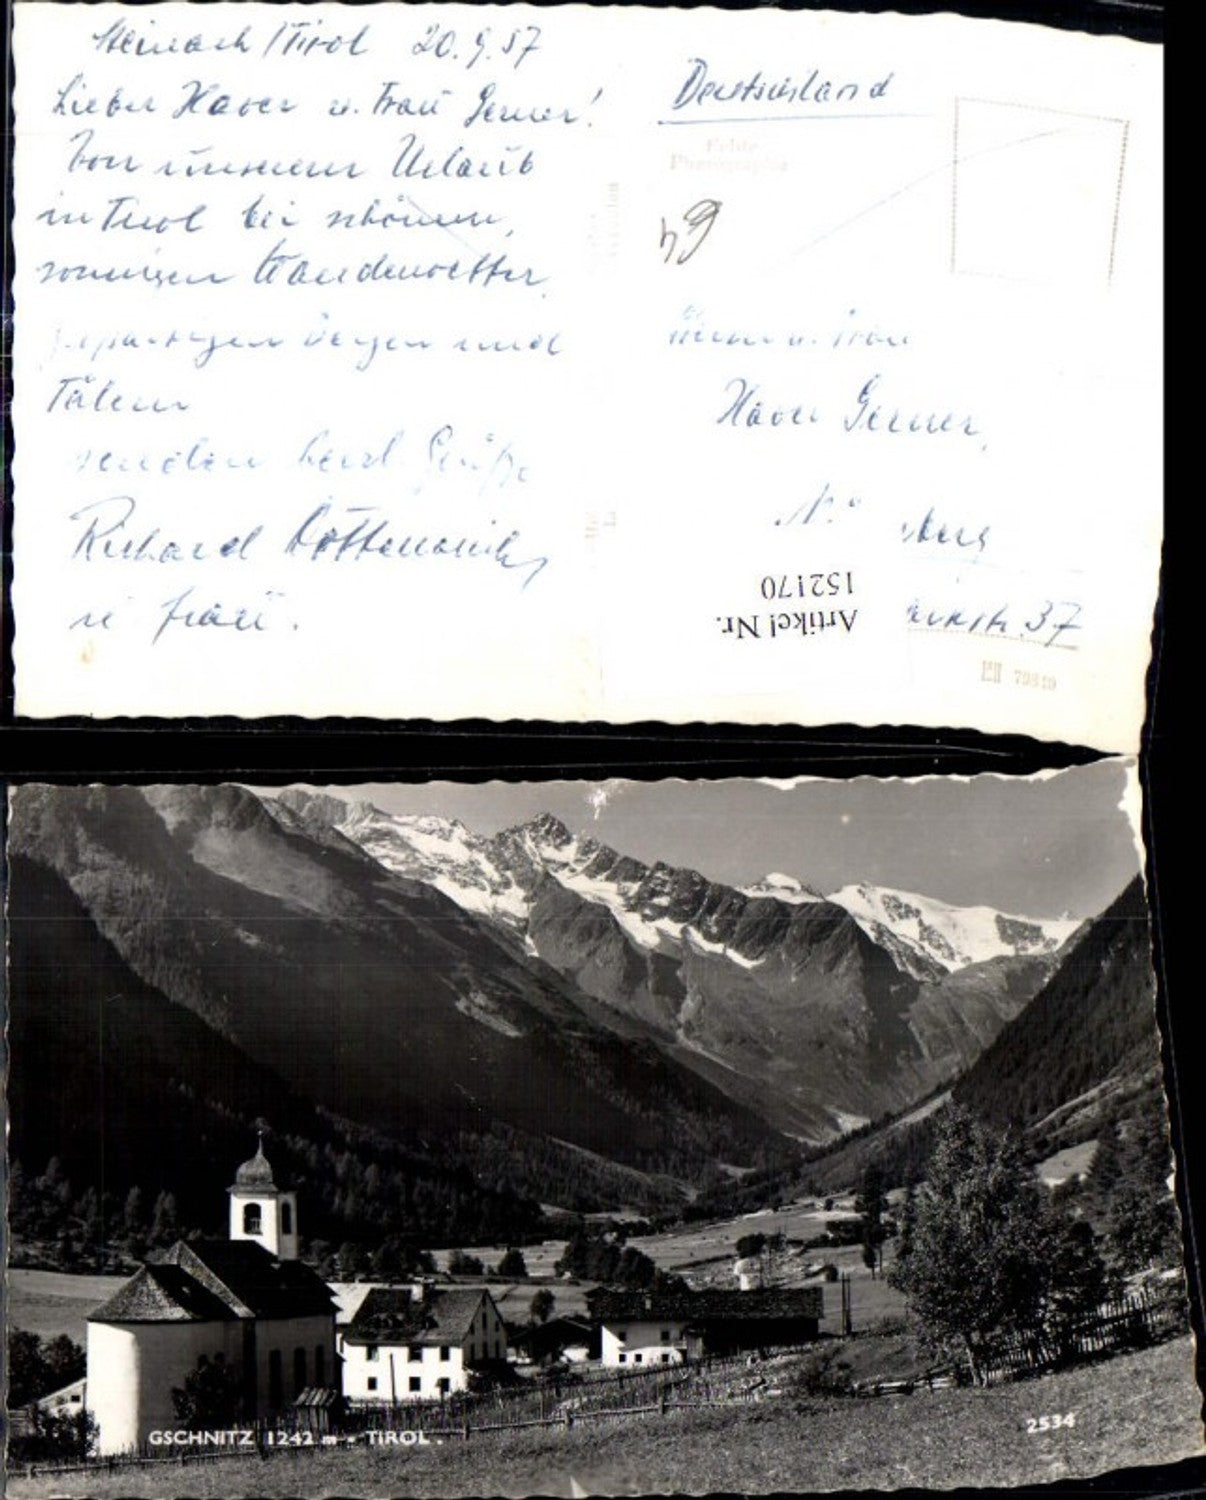 Steinach / Tirol 20.9.57
Lieber Xaver u. Frau Gerner!
Von unserem Urlaub
in Tirol bei schönem,
sonnigen Wanderwetter,
Bergen und
Tälern
senden herzl. Grüße
Richard
u. Frau.
Deutschland
Echte
Photographie
64
Herrn u. Frau
Xaver Gerner,
berg
37
Artikel Nr.
152170
GSCHNITZ 1242 m - TIROL.
2534